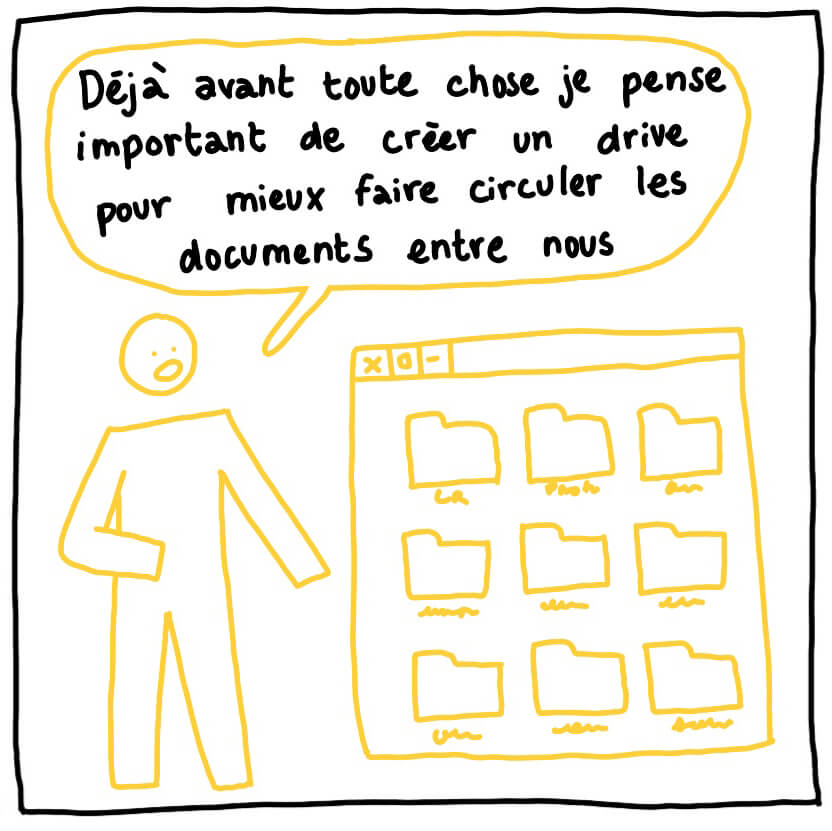 Déjà avant toute chose je pense
important de crèer un drive
pour mieux faire circuler les
documents entre nous